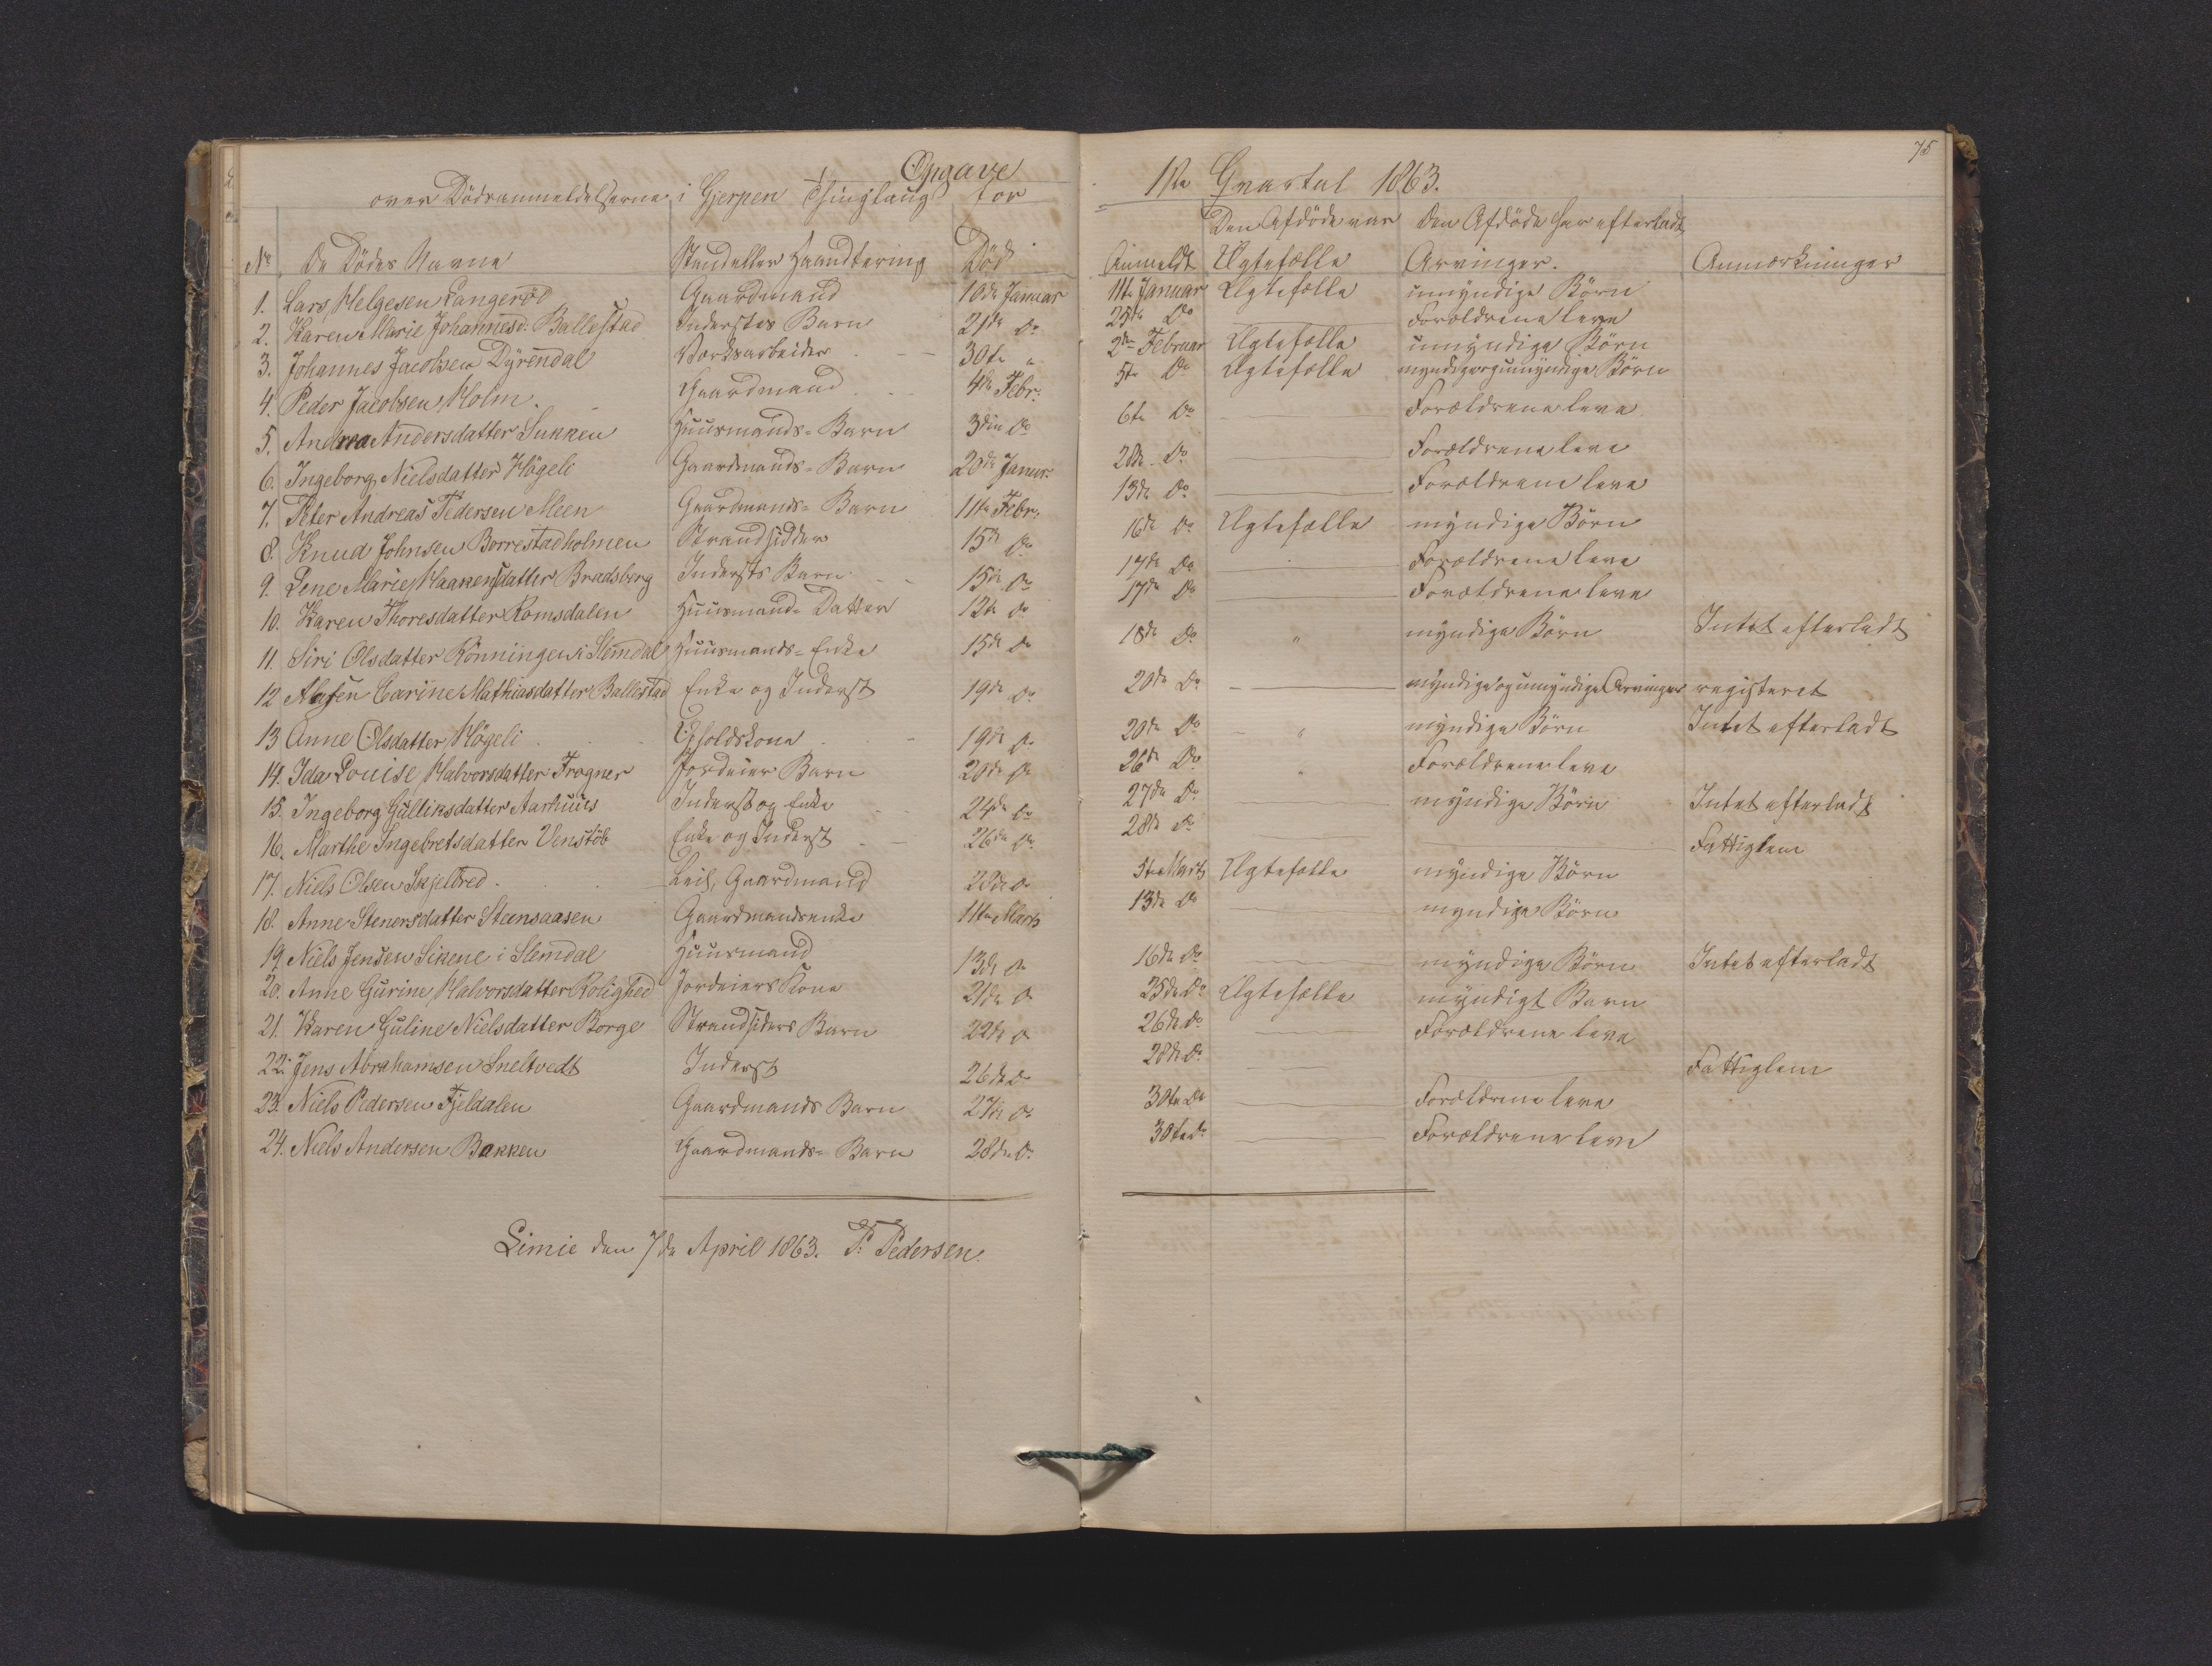 75
Opgave 1ste Qvartal 1863.
over Dödsanmeldelserne i Gjerpen Thinglaug for
Den Afdöde var Den Afdöde har efterladt
No De Dödes Navne Stand eller Haandtering Död Anmeldt Ægtefælle Arvinger. Anmærkninger
1. Lars Helgesen Langeröd Gaardmand 10de Januar 11te Januar Ægtefælle umyndige Börn
2. Karen Marie Johannesd: Ballestad Inderstes Barn 21de Do 25de Do Forældrene leve
3. Johannes Jacobsen Dÿrendal Værksarbeider 30te " 2den Februar Ægtefælle umyndige Börn
4. Peder Jacobsen Holm. Gaardmand 4de Febr: 5te Do Ægtefælle myndige og umyndige Börn
5. Andrea Andersdatter Sukken Huusmands-Barn 3die Do 6te Do Forældrene leve
6. Ingeborg Nielsdatter Högeli Gaardmands-Barn 20de Januar 20de Do Forældrene leve
7. Peter Andreas Pedersen Meen Gaardmands-Barn 11te Febr: 13de Do Forældrene leve
8. Knud Johnsen Borrestadholmen Strandsidder 15de Do 16de Do Ægtefælle myndige Börn
9. Lene Marie Haakensdatter Bradsberg Indersts Barn 15de Do 17de Do Forældrene leve
10. Karen Thoresdatter Romsdalen Huusmands Datter 12te Do 17de Do Forældrene leve
11. Siri Olsdatter Rönningen i Slemdal Huusmands-Enke 15de Do 18de Do " myndige Börn Intet efterladt
12 Maren Carine Mathiasdatter Ballestad Enke og Inderst 19de Do 20de Do myndige og umyndige Arvinger registeret
13 Anne Olsdatter Högeli Opholdskone 19de Do 20de Do " myndige Börn Intet efterladt
14. Ida Louise Halvorsdatter Frogner Jordeier Barn 20de Do 26de Do " Forældrene leve
15. Ingeborg Gulliksdatter Aarhuus Inderst og Enke 24de Do 27de Do myndige Börn Intet efterladt
16. Marthe Ingebretsdatter Venstöb Enke og Inderst 26de Do 28de Do Fattiglem
17. Niels Olsen Skjelbred. Leil. Gaardmand 28de Do 5te Marts Ægtefælle myndige Börn
18. Anne Stenersdatter Steensaasen Gaardmandsenke 11te Marts 13de Do myndige Börn
19 Niels Jensen Sikene i Slemdal Huusmand 13de Do 16de Do myndige Börn Intet efterladt
20. Anne Gurine Halvorsdatter Rolighed Jordeiers Kone 21de Do 25de Do Ægtefælle myndigt Barn
21. Karen Guline Nielsdatter Borge Strandsiders Barn 22de Do 26de Do Forældrene leve
22. Jens Abrahamsen Sneltvedt Inderst 26de Do 28de Do Fattiglem
23. Niels Pedersen Fjeldalen Gaardmands Barn 27de Do 30te Do Forældrene leve
24. Niels Andersen Bakken Gaardmands-Barn 28de Do 30te Do Forældrene leve
Limie den 7de April 1863. P. Pedersen.